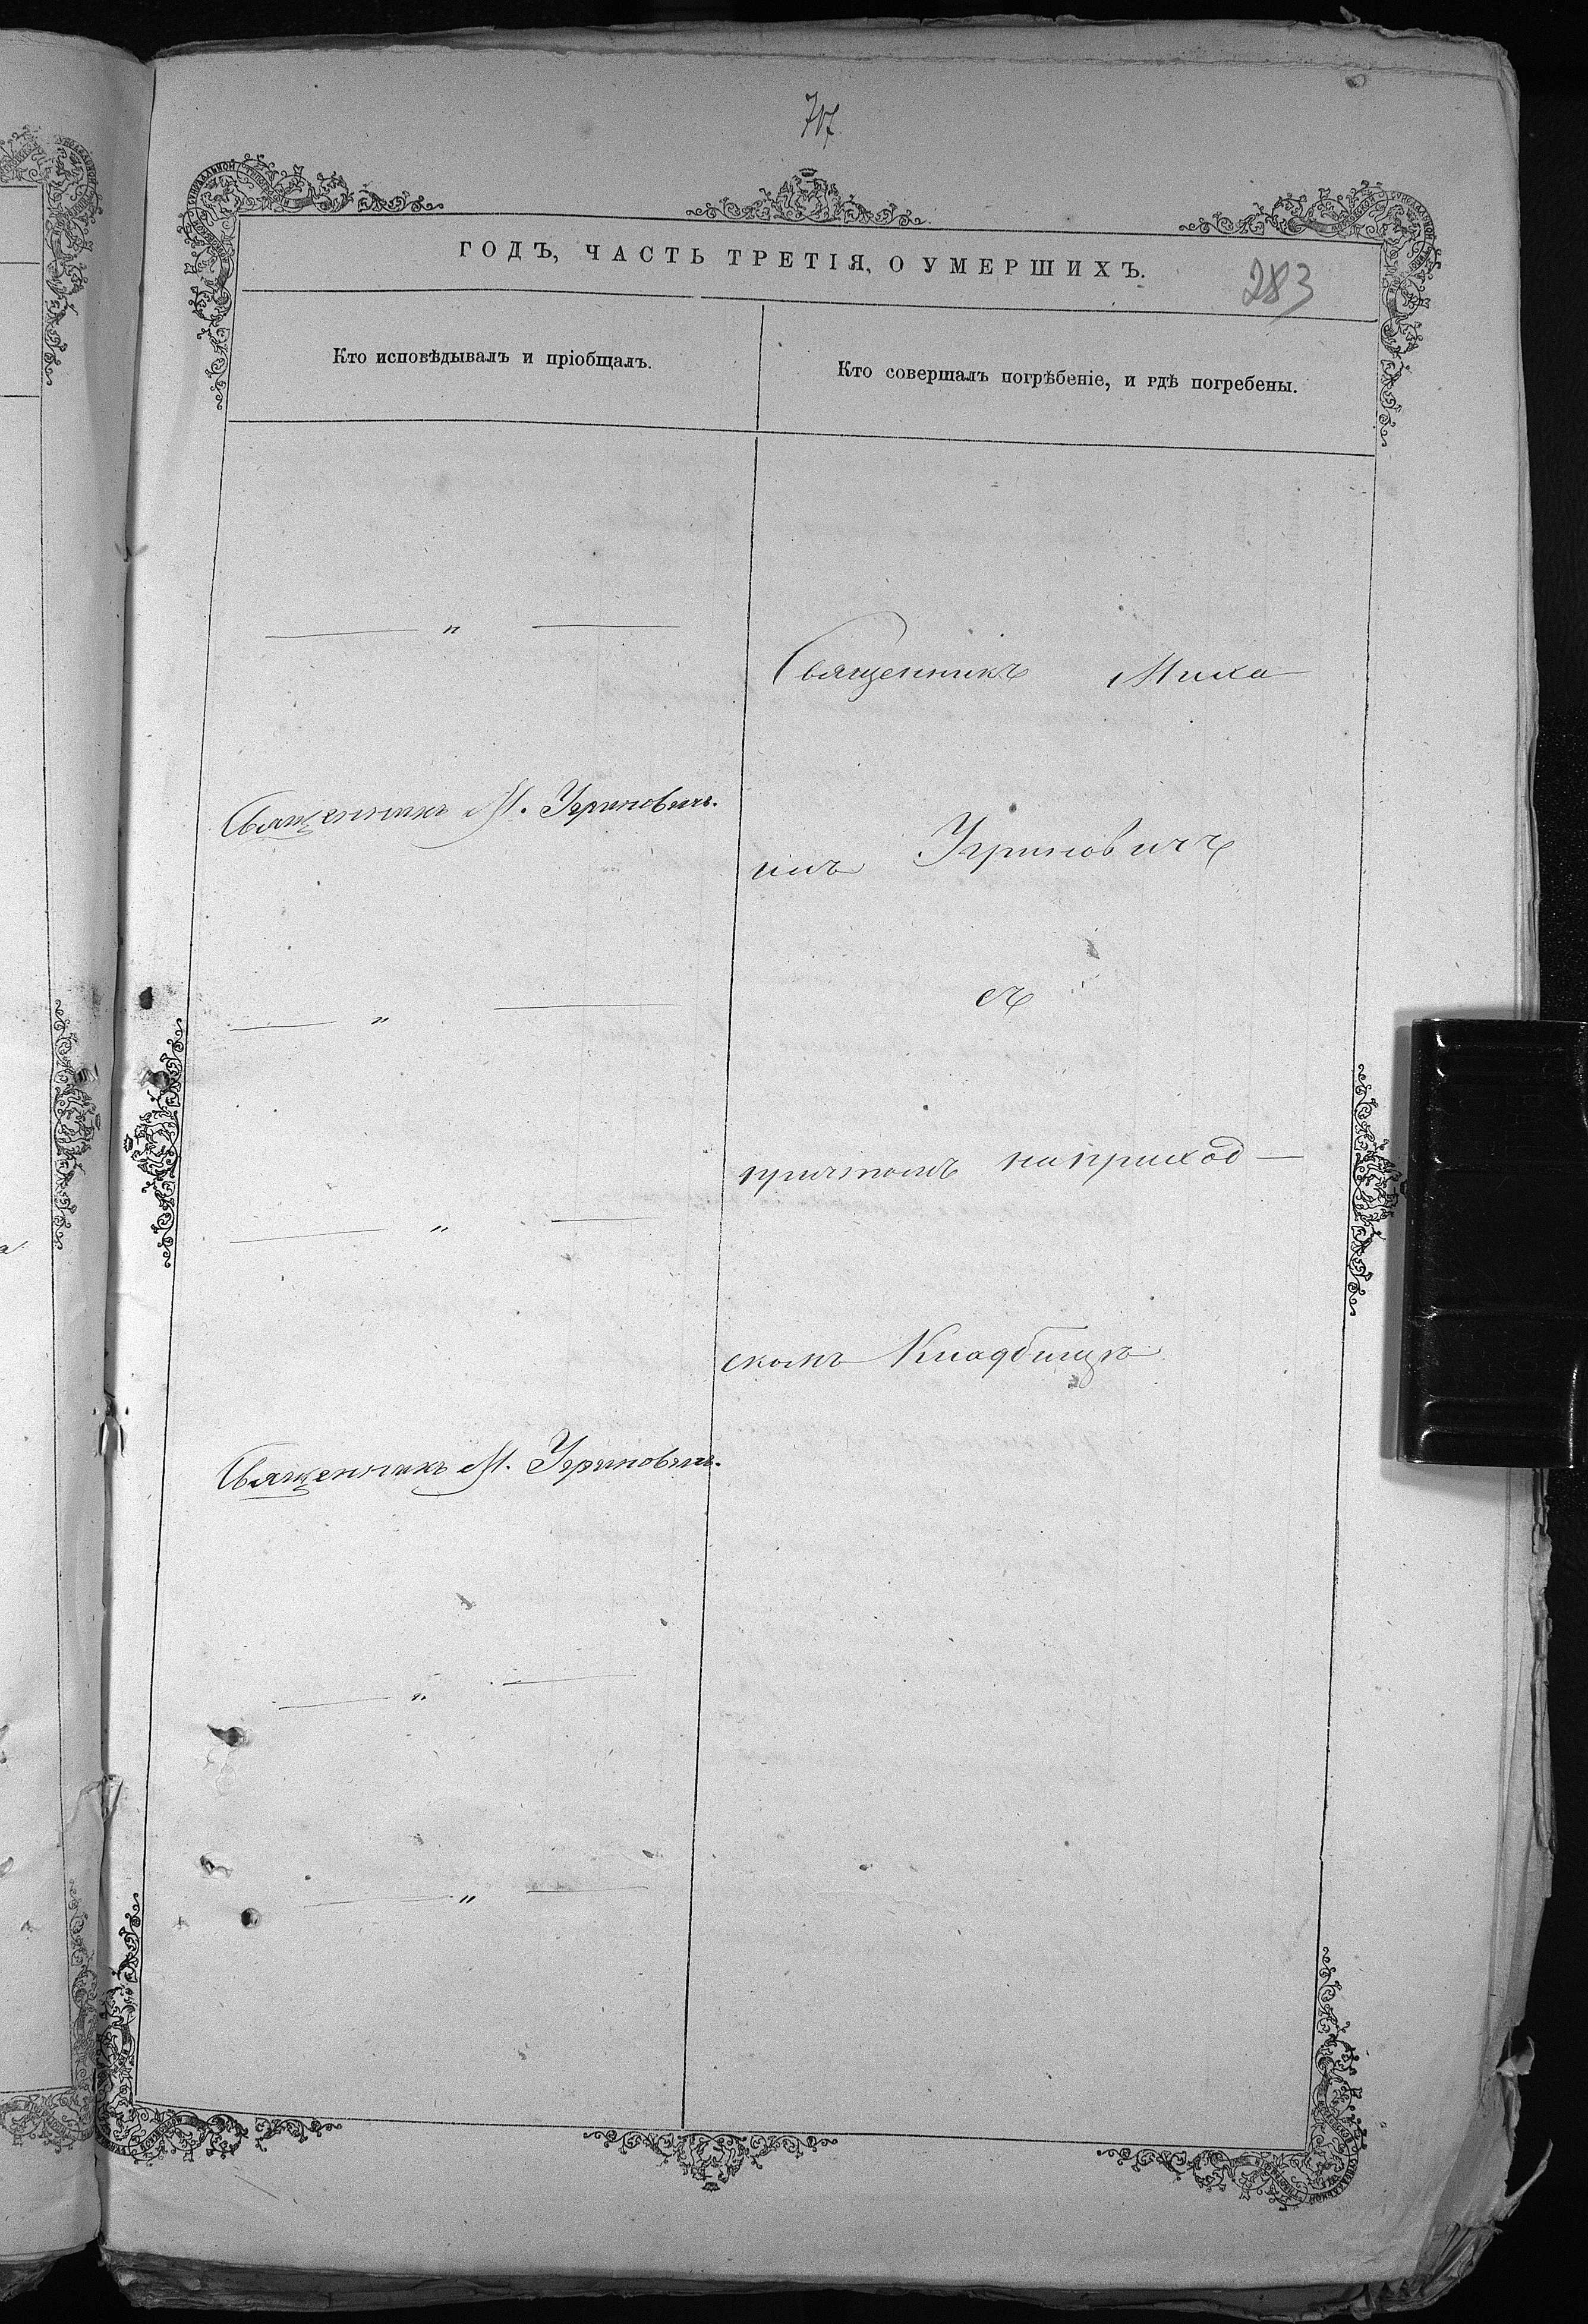 707
ГОДЪ, ЧАСТЬ ТРЕТІЯ, О УМЕРШИХЪ.
283
Кто исповѣдывалъ и пріобщалъ.
Кто совершалъ погрѣбеніе, и гдѣ погребены.
— " —
Священникъ Миха
Священникъ М. Угриновичъ.
илъ Угриновичъ
— " —
съ
причтомъ на приход—
— " —
скомъ Кладбищѣ
Священникъ М. Угриновичъ.
— " —
— " —